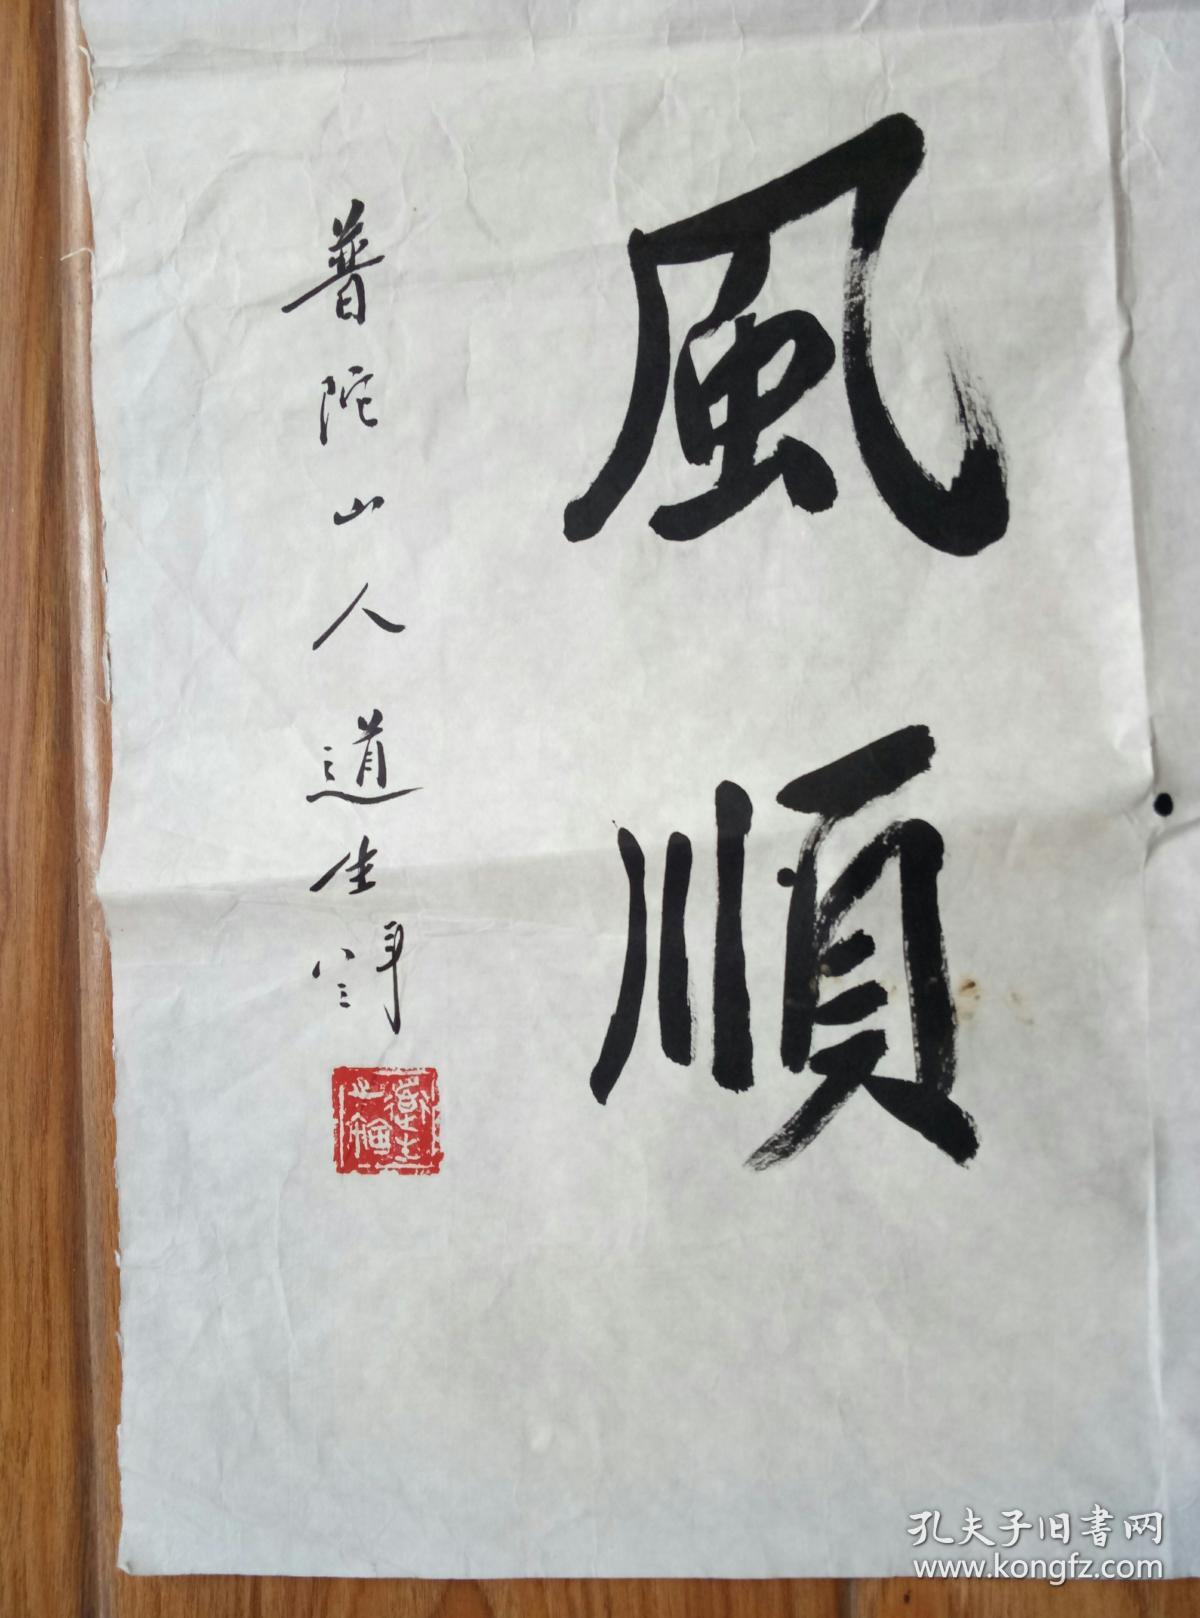 風順
普陀山人道生
孔夫子旧書网
www.kongfz.com